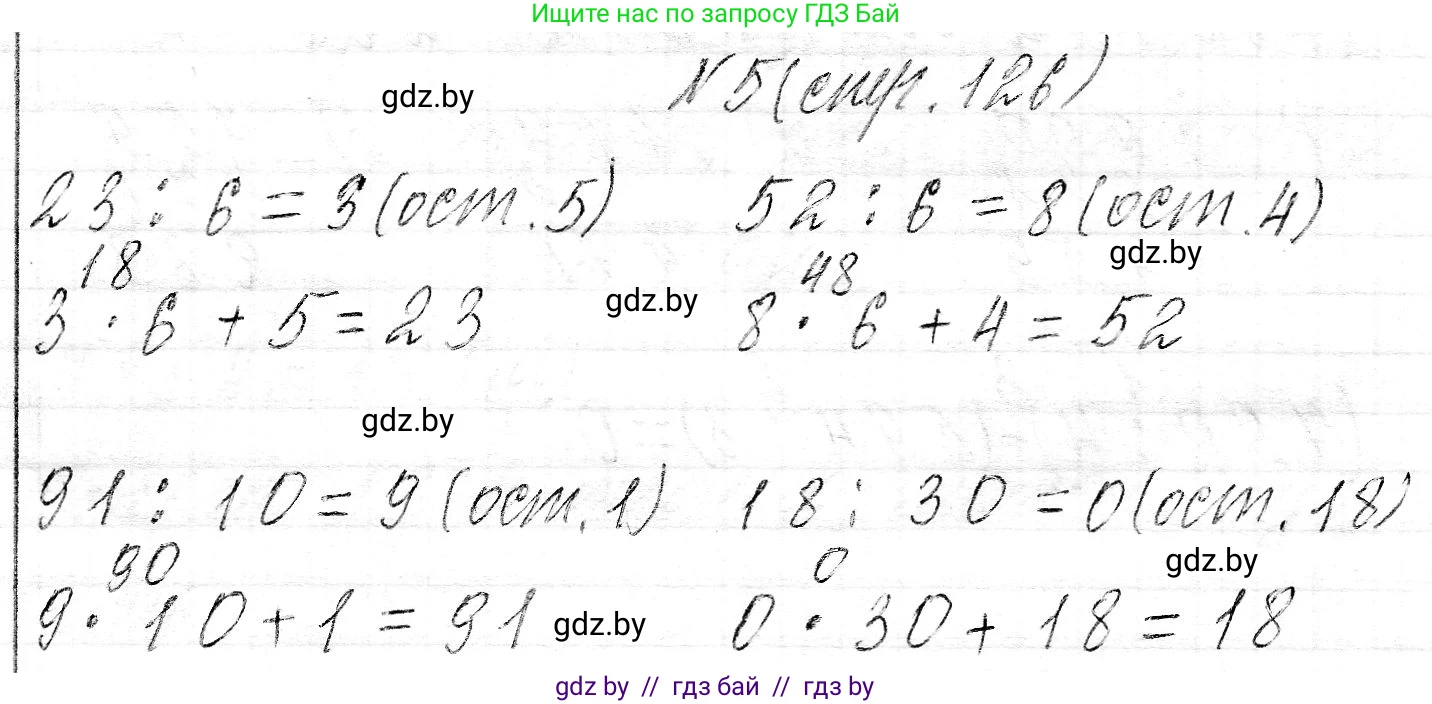 Ищите нас по запросу ГДЗ Бай
gdz.by № 5 (стр. 126)
23 : 6 = 3 (ост. 5) 52 : 6 = 8 (ост. 4)
gdz.by
18 48
3 · 6 + 5 = 23 gdz.by 8 · 6 + 4 = 52
gdz.by
91 : 10 = 9 (ост. 1) 18 : 30 = 0 (ост. 18)
90 0 gdz.by
9 · 10 + 1 = 91 gdz.by 0 · 30 + 18 = 18
gdz by // гдз бай // гдз by